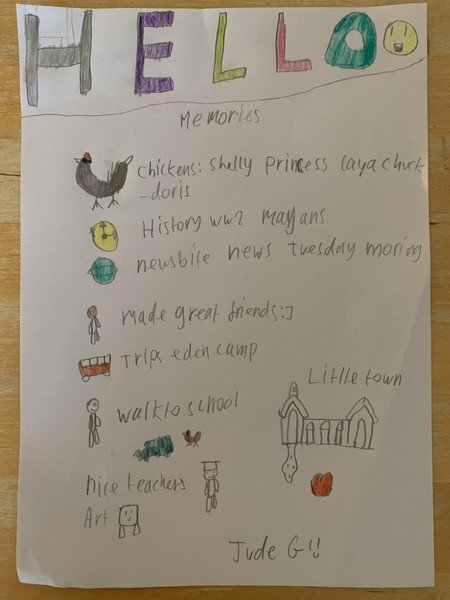 HELLO
Memories
chickens: shelly princess laya chuck
-doris
History ww2 mayans
newsbite news Tuesday moring
made great friends:]
Trips eden camp
Little town
walk to school
nice teachers
Art
Jude G!!